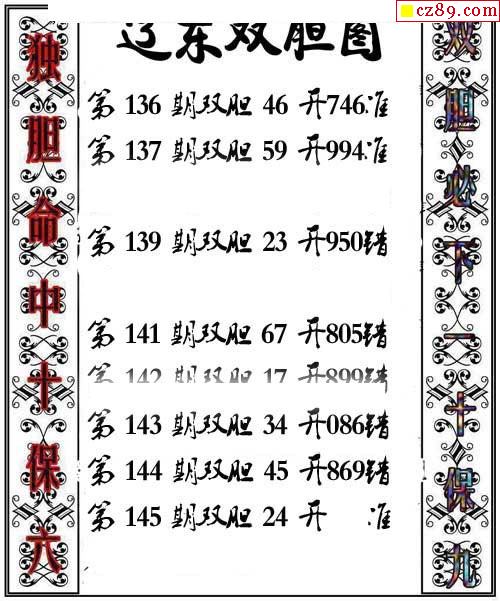 cz89.com
辽东双胆图
独胆命中十保六
第 136 期双胆 46 开746准
第 137 期双胆 59 开994准
第 139 期双胆 23 开950错
第 141 期双胆 67 开805错
第 142 期双胆 17 开899错
第 143 期双胆 34 开086错
第 144 期双胆 45 开869错
第 145 期双胆 24 开 准
双胆必下一十保九